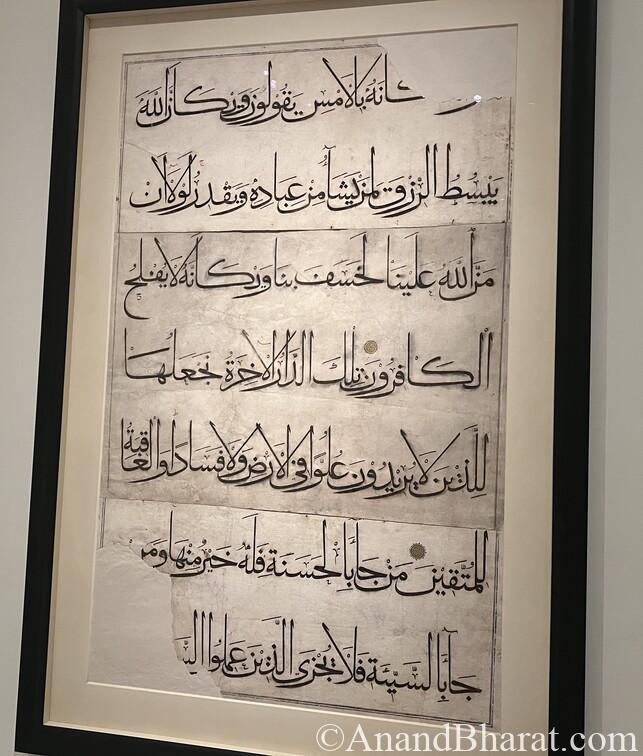 كانه بالامس يقولون ويكان الله
يبسط الرزق لمن يشآ من عباده ويقدر لولا ان
من الله علينا لخسف بنا ويكانه لا يفلح
الكافرون تلك الدار الاخرة نجعلها
للذين لا يريدون علوا في الارض ولا فسادا والعاقبة
للمتقين من جا بالحسنة فله خير منها ومن
جآ بالسيئة فلا يجزى الذين عملوا
©AnandBharat.com